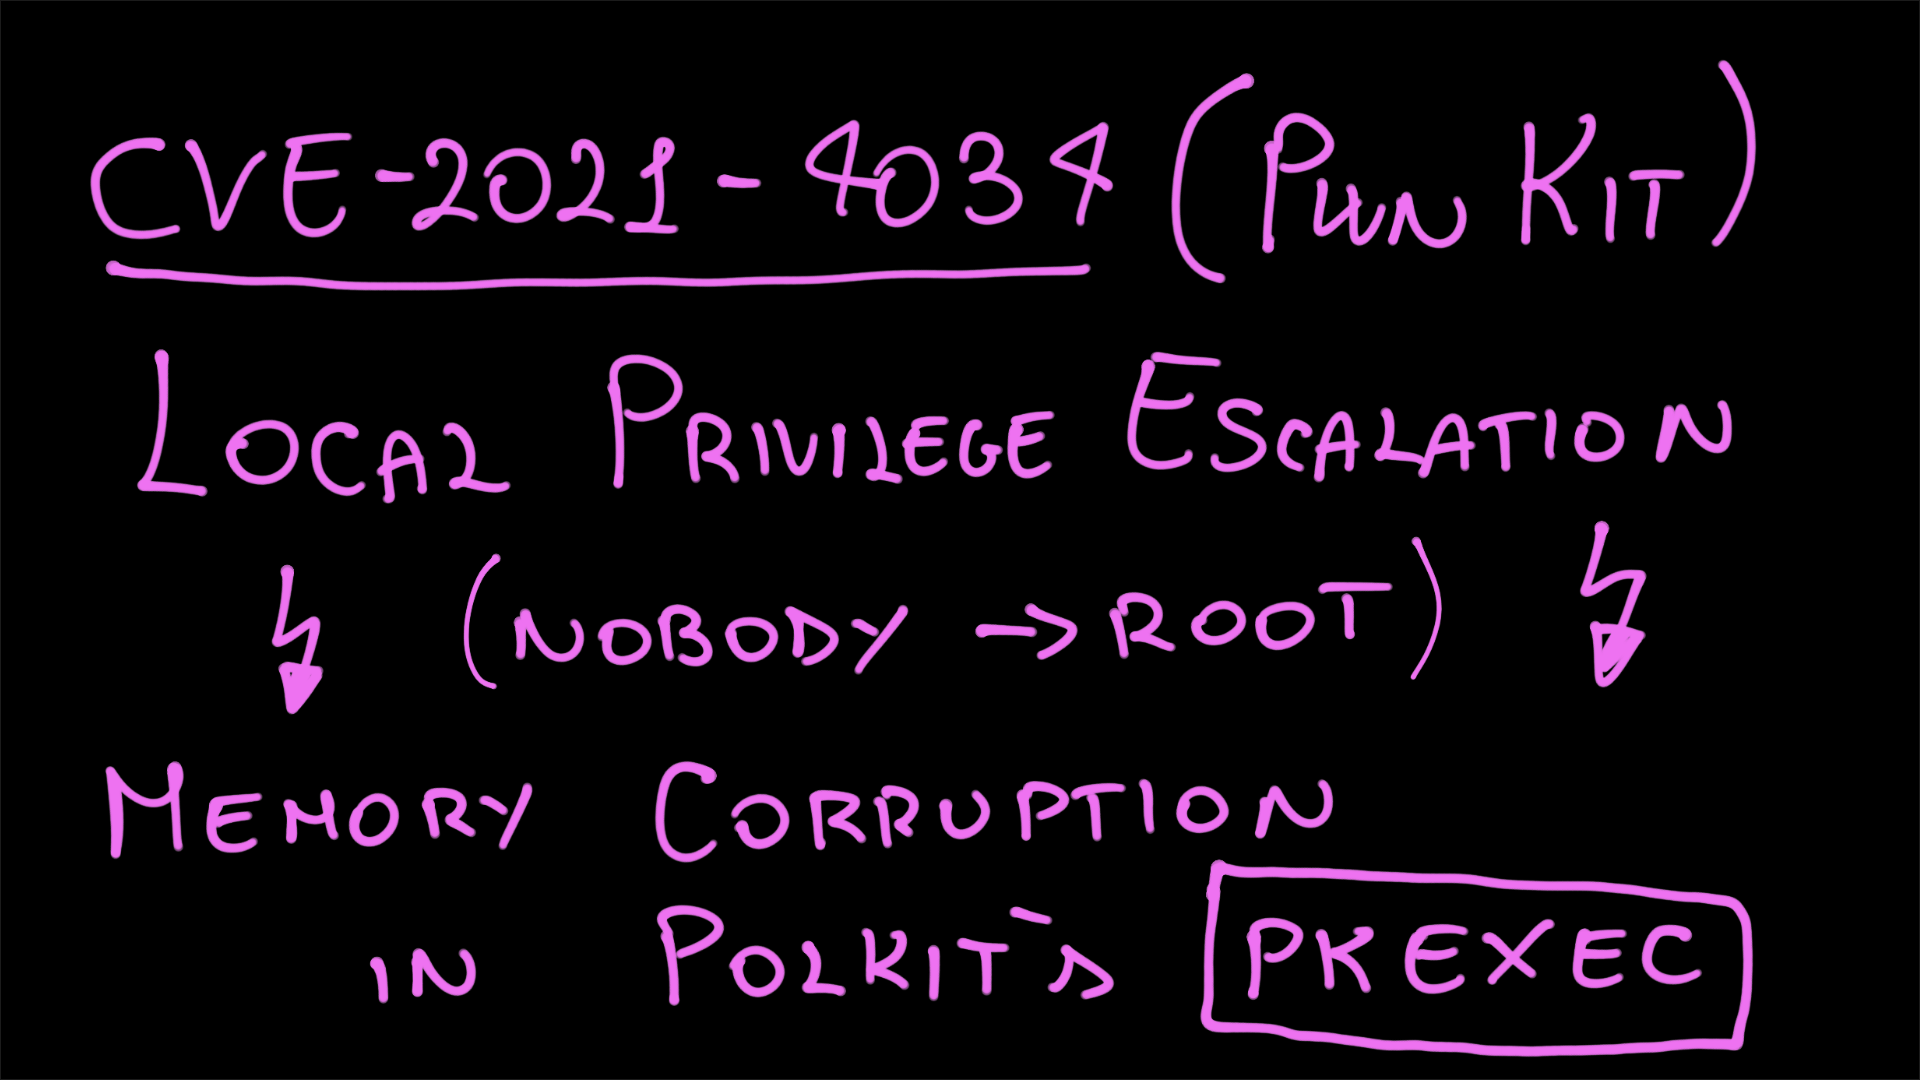 CVE-2021-4034 (PwnKit)
Local Privilege Escalation
(nobody -> root)
Memory Corruption
in Polkit's pkexec